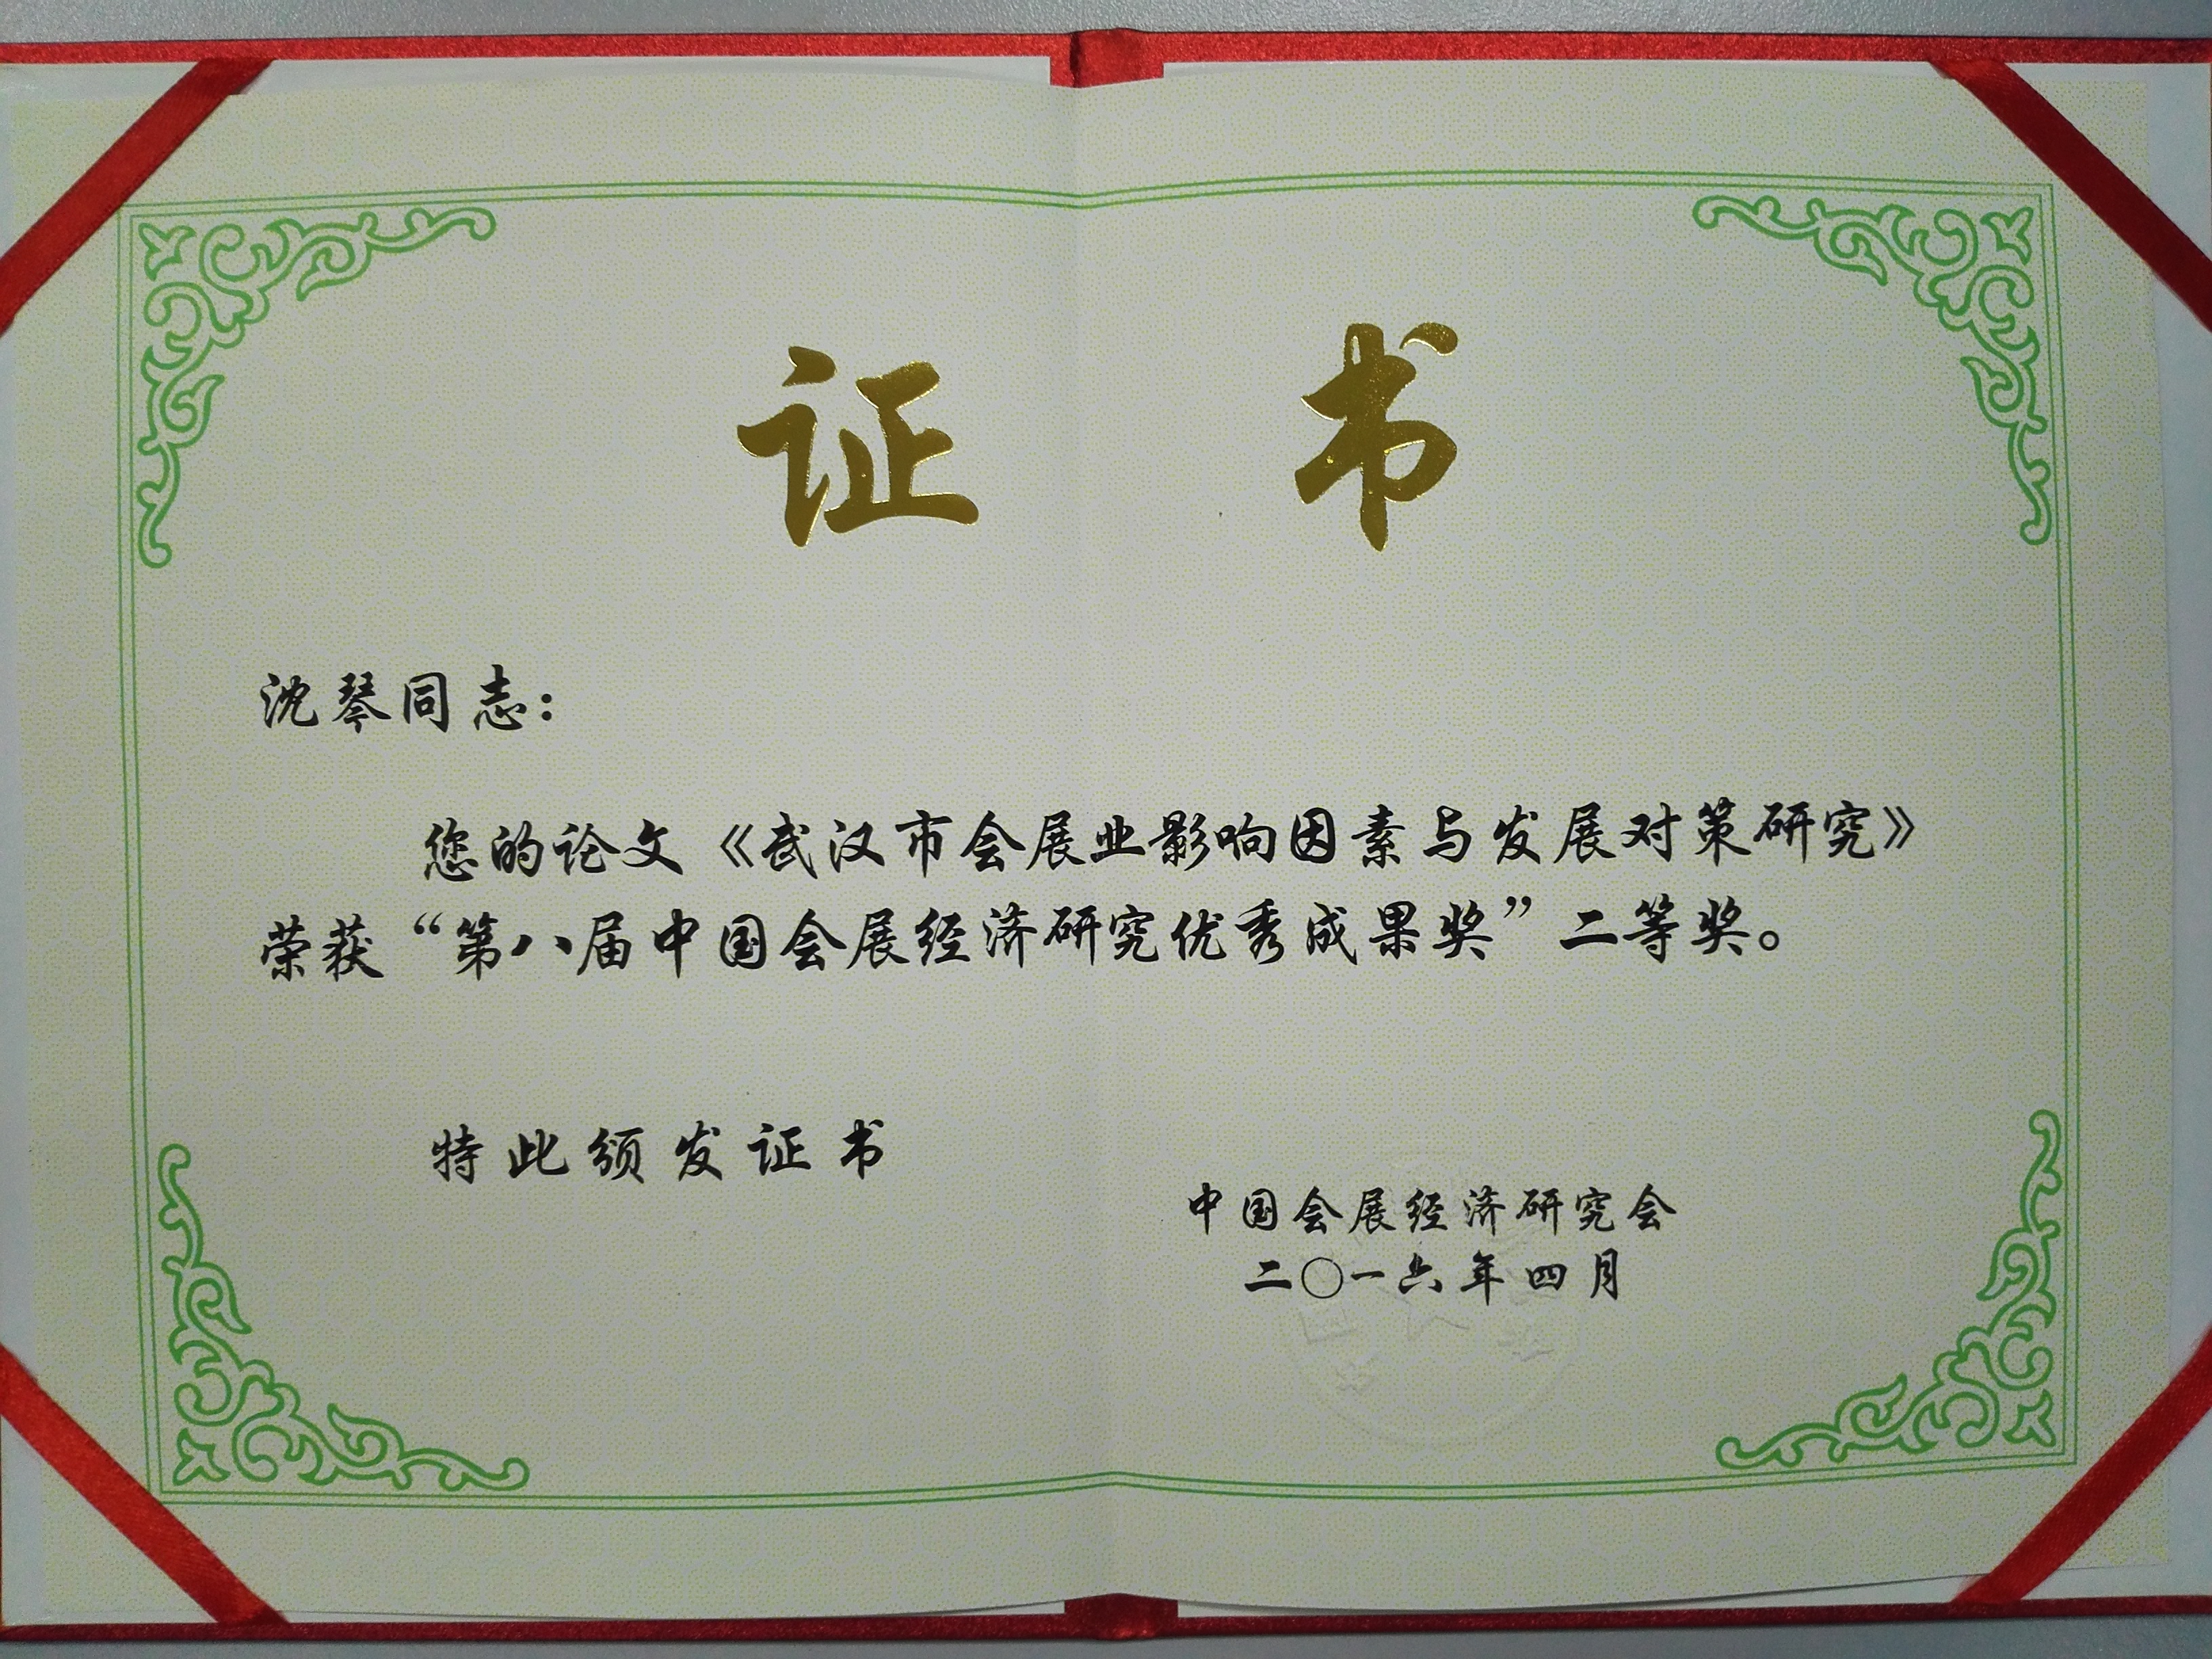 证书
沈琴同志：
您的论文《武汉市会展业影响因素与发展对策研究》
荣获“第八届中国会展经济研究优秀成果奖”二等奖。
特此颁发证书
中国会展经济研究会
二〇一六年四月